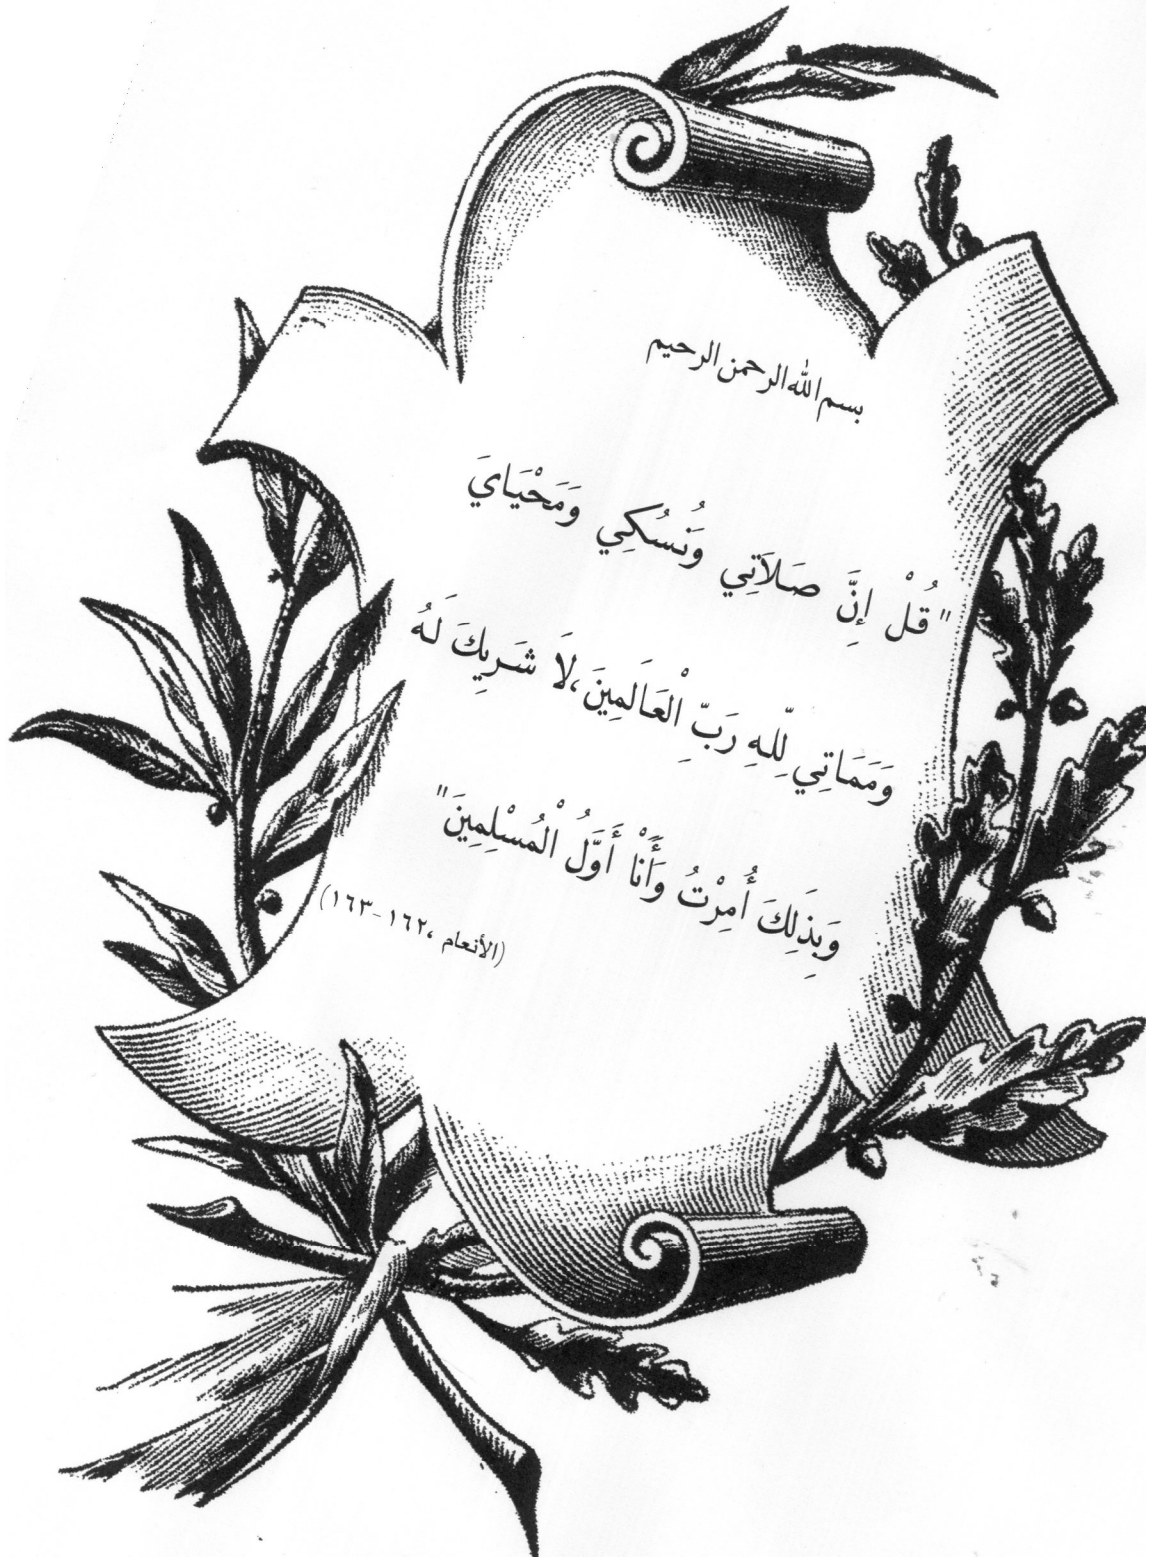 بسم الله الرحمن الرحيم
"قُلْ إِنَّ صَلاَتِي وَنُسُكِي وَمَحْيَايَ
وَمَمَاتِي لِلّهِ رَبِّ الْعَالَمِينَ، لاَ شَرِيكَ لَهُ
وَبِذَلِكَ أُمِرْتُ وَأَنْا أَوَّلُ الْمُسْلِمِينَ"
(الأنعام ،١٦٢-١٦٣)